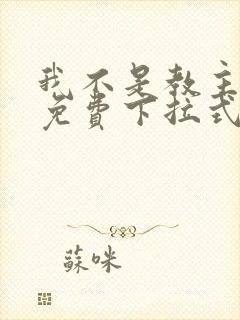 我不是教主
免費下拉式
蘇咪